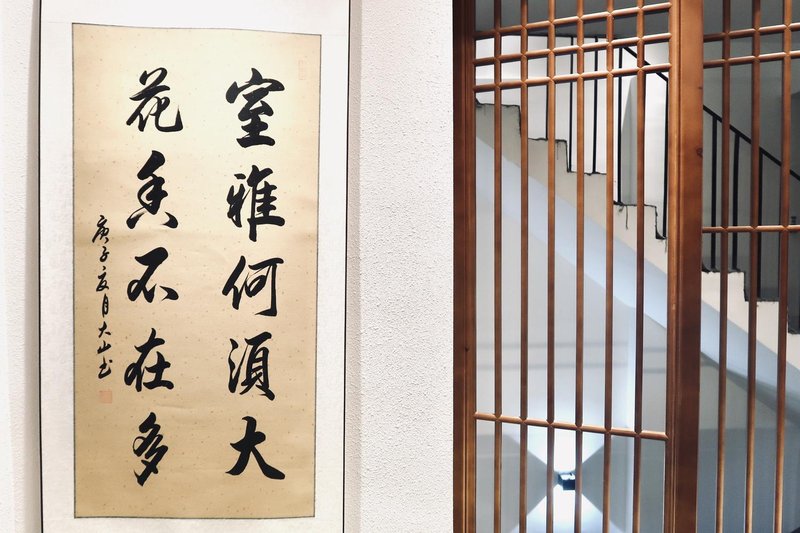 室雅何須大
花香不在多
庚子夏月大山书